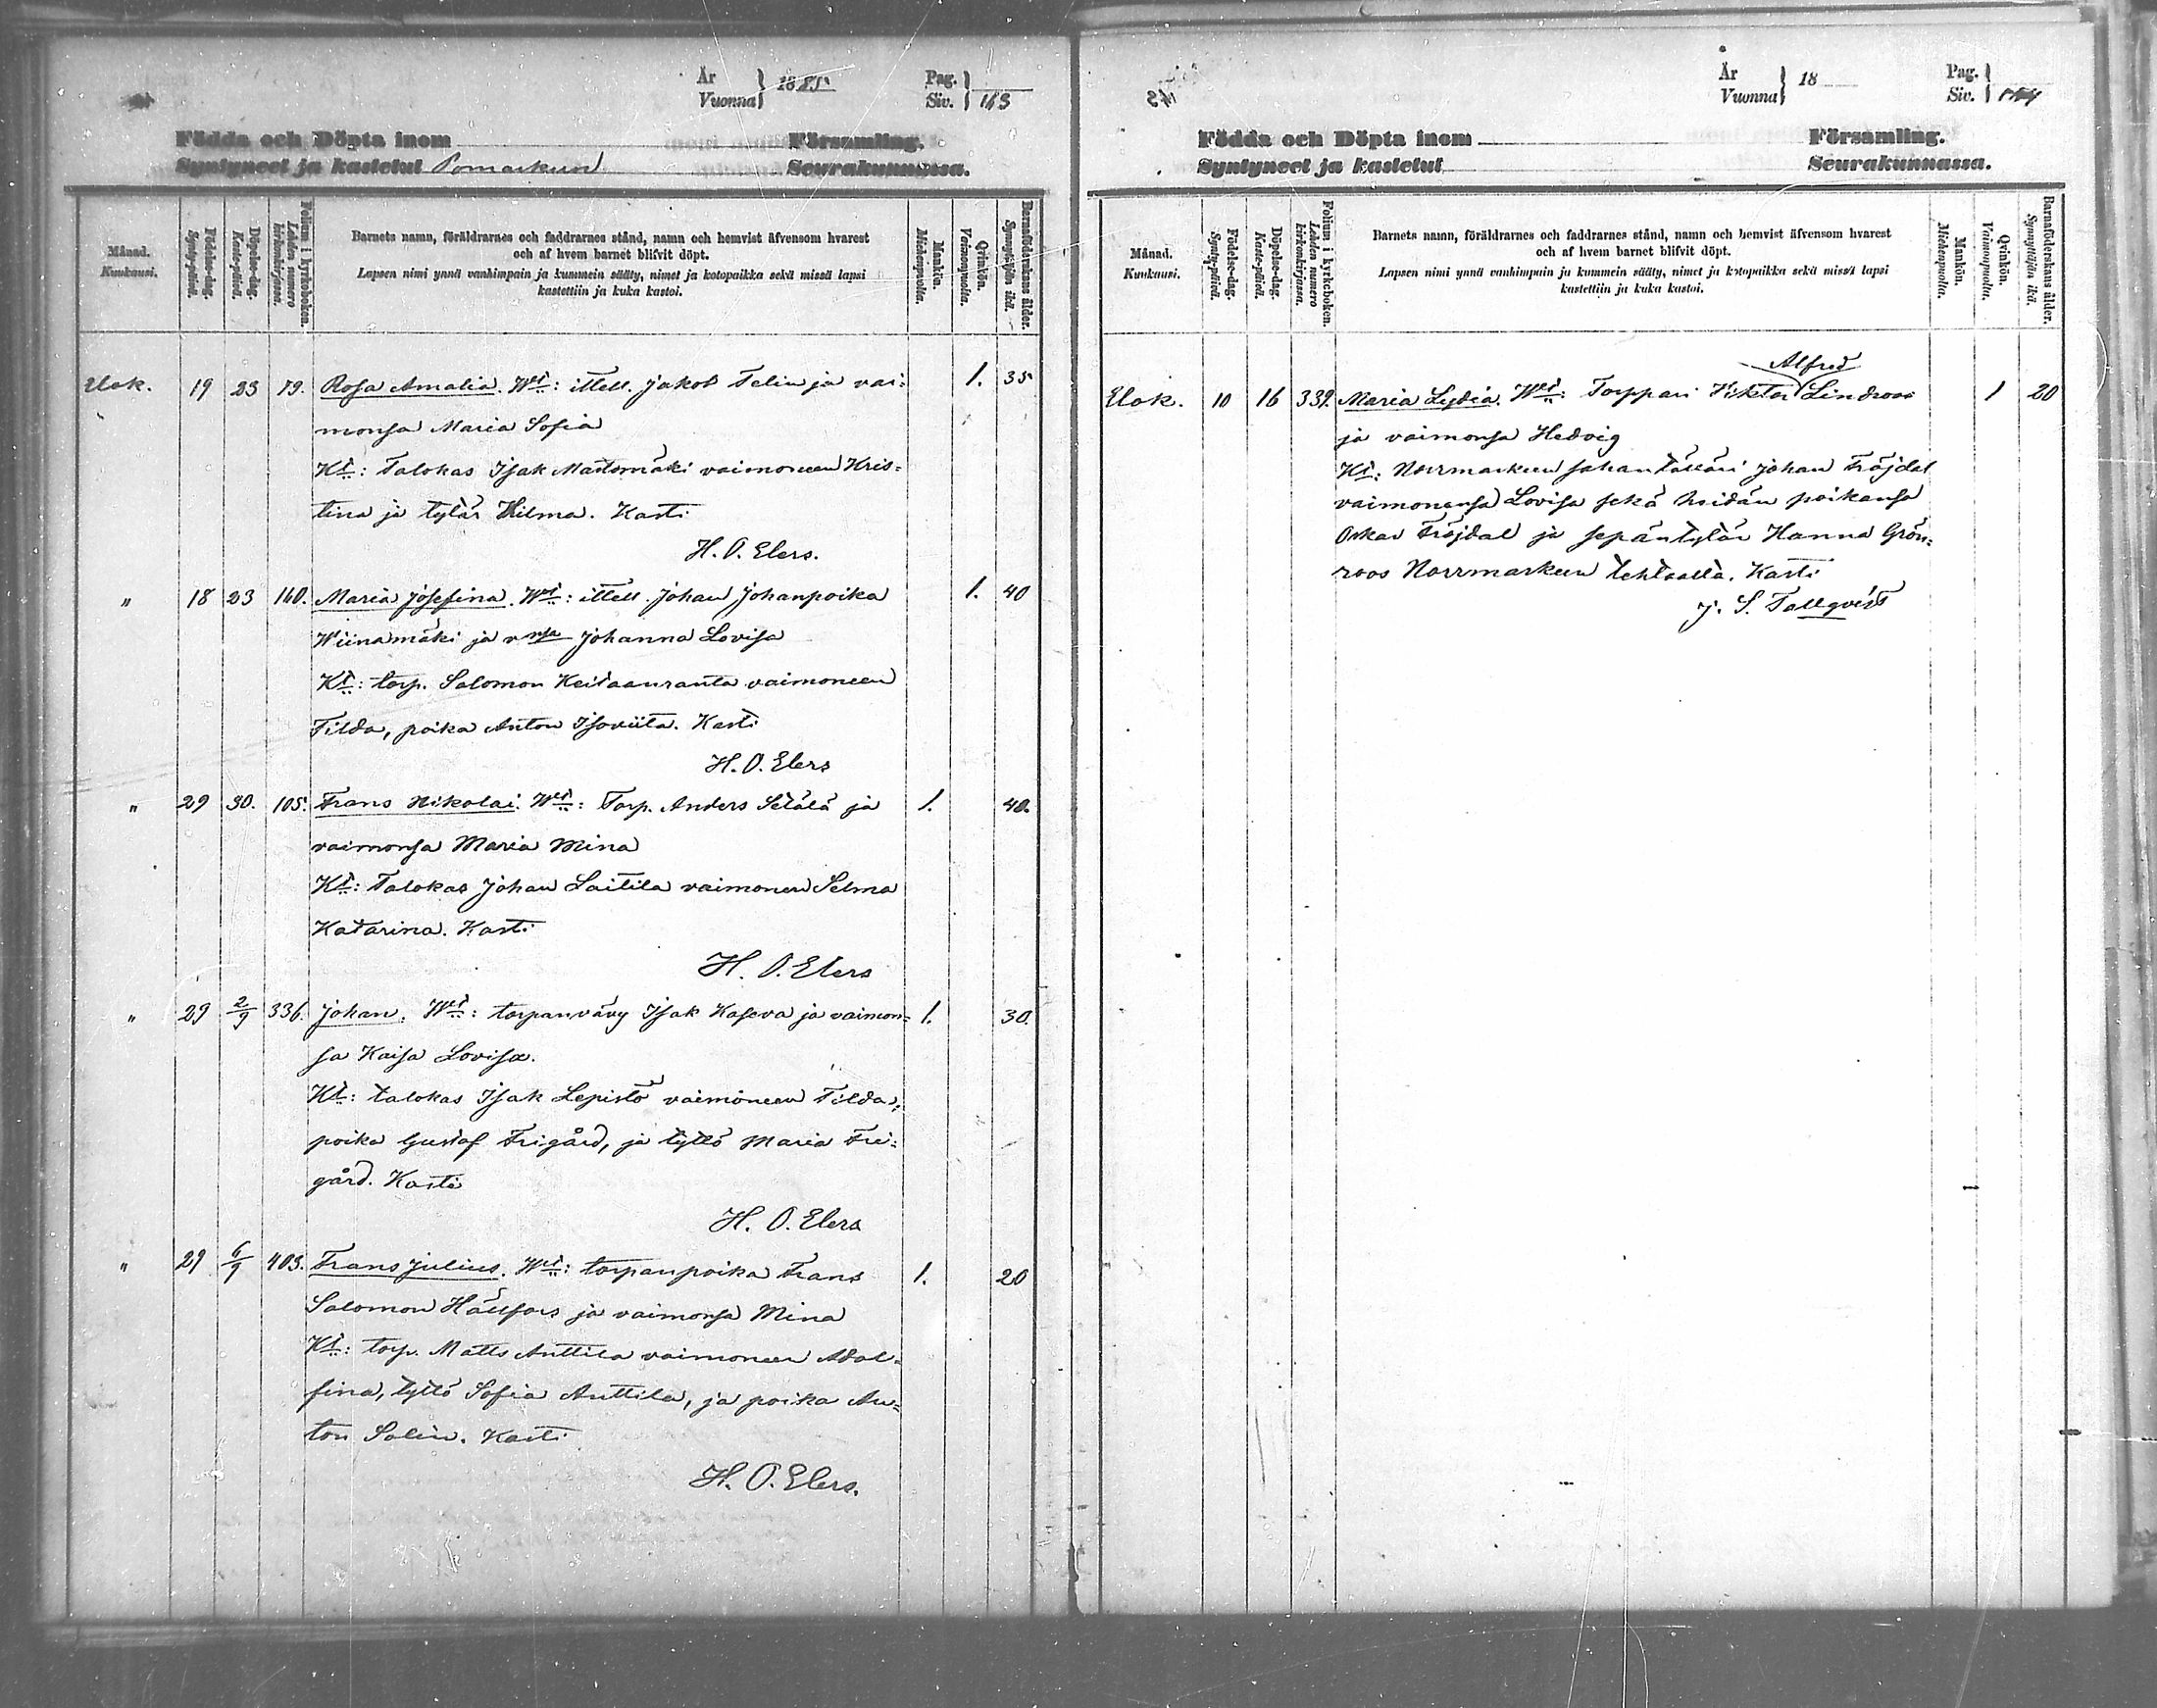 År
Vuonna } 1885
Pag.
Siv. } 163
Födda och Döpta inom Församling.
Syntyneet ja kastetut Pomarkun Seurakunnassa.
Månad.
Kuukausi.
Födelse-dag.
Synty-päivä.
Döpelse-dag.
Kaste-päivä.
Folium i kyrkoboken.
Lehden numero kirkonkirjassa.
Barnets namn, föräldrarnes och faddrarnes stånd, namn och hemvist äfvensom hvarest
och af hvem barnet blifvit döpt.
Lapsen nimi ynnä vanhimpain ja kummein sääty, nimet ja kotopaikka sekä missä lapsi
kastettiin ja kuka kastoi.
Mankön.
Miehenpuolta.
Qvinkön.
Vaimonpuolta.
Barnaföderskans ålder.
Synnyttäjän ikä.
Elok. 19 23 79. Rosa Amalia. Wt: ittell. Jakob Felin ja vai= 1. 35
monsa Maria Sofia
Kt: Talokas Isak Mastomäki vaimoneen Kris=
tina ja tytär Hilma. Kasti
H. O. Elers.
" 18 23 160. Maria Josefina. Wt: ittell. Johan Johanpoika 1. 40
Wiinamäki ja vnsa Johanna Lovisa
Kt: torp. Salomon Keitaanranta vaimoneen
Tilda, poika Anton Isoviita. Kasti
H. O. Elers
" 29 30. 105. Frans Nikolai. Wt: Torp. Anders Setälä ja 1. 40.
vaimonsa Maria Mina
Kt: Talokas Johan Laitila vaimoneen Selma
Katarina. Kasti
H. O. Elers
" 29 2/9 336. Johan. Wt: torpanvävy Isak Kaseva ja vaimon= 1. 30.
sa Kaisa Lovisa.
Kt: talokas Isak Lepistö vaimoneen Tilda,
poika Gustaf Frigård, ja tyttö Maria Fri=
gård. Kasti
H. O. Elers
" 29 6/9 403. Frans Julius. Wt: torpanpoika Frans 1. 20
Salomon Hällfors ja vaimonsa Mina
Kt: torp. Matts Anttila vaimoneen Adol=
fina, tyttö Sofia Anttila, ja poika An=
ton Salin. Kasti
H. O. Elers.
År
Vuonna } 18
Pag.
Siv. } 164
Födda och Döpta inom Församling.
Syntyneet ja kastetut Seurakunnassa.
Månad.
Kuukausi.
Födelse-dag.
Synty-päivä.
Döpelse-dag.
Kaste-päivä.
Folium i kyrkoboken.
Lehden numero kirkonkirjassa.
Barnets namn, föräldrarnes och faddrarnes stånd, namn och hemvist äfvensom hvarest
och af hvem barnet blifvit döpt.
Lapsen nimi ynnä vanhimpain ja kummein sääty, nimet ja kotopaikka sekä missä lapsi
kastettiin ja kuka kastoi.
Mankön.
Miehenpuolta.
Qvinkön.
Vaimonpuolta.
Barnaföderskans ålder.
Synnyttäjän ikä.
Alfred
Elok. 10 16 339. Maria Lydia. Wt: Torppari Viktor Lindroos 1 20
ja vaimonsa Hedvig
Kt: Norrmarkun sahantälläri Johan Fröjdal
vaimonensa Lovisa sekä heidän poikansa
Oskar Fröjdal ja sepäntytär Hanna Grön=
roos Norrmarkun tehtaalta. Kasti
J. S. Tallqvist